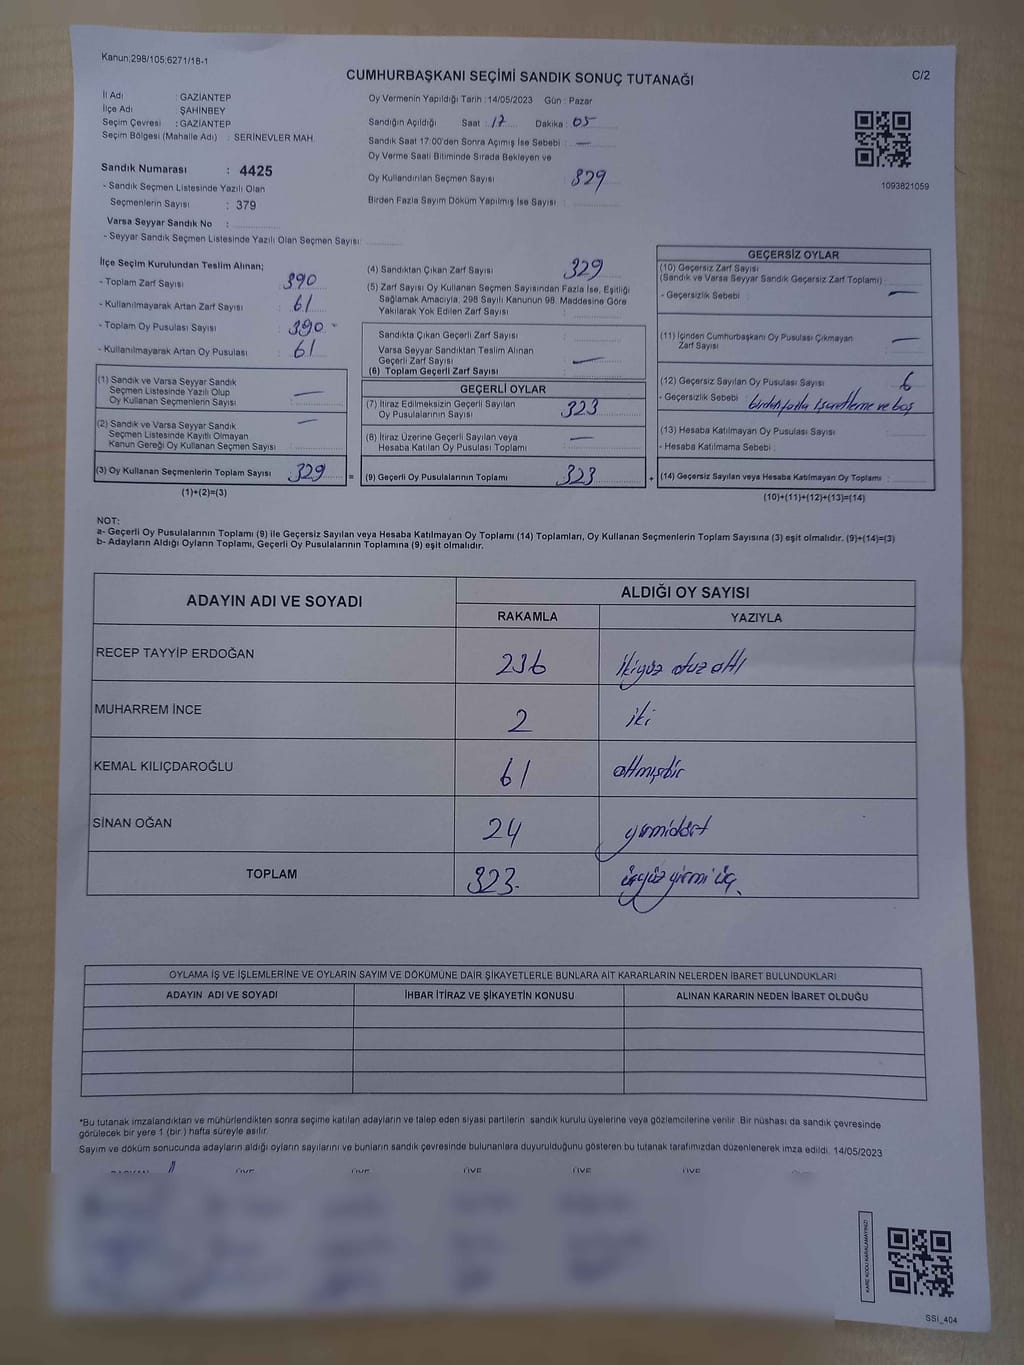 Kanun:298/105;6271/18-1
CUMHURBAŞKANI SEÇİMİ SANDIK SONUÇ TUTANAĞI
C/2
İl Adı : GAZİANTEP
İlçe Adı : ŞAHİNBEY
Seçim Çevresi : GAZİANTEP
Seçim Bölgesi (Mahalle Adı) : SERİNEVLER MAH
Sandık Numarası : 4425
- Sandık Seçmen Listesinde Yazılı Olan
Seçmenlerin Sayısı : 379
Varsa Seyyar Sandık No :
- Seyyar Sandık Seçmen Listesinde Yazılı Olan Seçmen Sayısı:
Oy Vermenin Yapıldığı Tarih :14/05/2023 Gün : Pazar
Sandığın Açıldığı Saat : 17 Dakika : 05
Sandık Saat 17:00'den Sonra Açımış İse Sebebi : —
Oy Verme Saati Bitiminde Sırada Bekleyen ve
Oy Kullandırılan Seçmen Sayısı : 329
Birden Fazla Sayım Döküm Yapılmış İse Sayısı :
1093821059
İlçe Seçim Kurulundan Teslim Alınan;
- Toplam Zarf Sayısı : 390
- Kullanılmayarak Artan Zarf Sayısı : 61
- Toplam Oy Pusulası Sayısı : 390
- Kullanılmayarak Artan Oy Pusulası : 61
(1) Sandık ve Varsa Seyyar Sandık
Seçmen Listesinde Yazılı Olup
Oy Kullanan Seçmenlerin Sayısı : —
(2) Sandık ve Varsa Seyyar Sandık
Seçmen Listesinde Kayıtlı Olmayan
Kanun Gereği Oy Kullanan Seçmen Sayısı : —
(3) Oy Kullanan Seçmenlerin Toplam Sayısı : 329
(1)+(2)=(3)
(4) Sandıktan Çıkan Zarf Sayısı : 329
(5) Zarf Sayısı Oy Kullanan Seçmen Sayısından Fazla İse, Eşitliği
Sağlamak Amacıyla, 298 Sayılı Kanunun 98. Maddesine Göre
Yakılarak Yok Edilen Zarf Sayısı :
Sandıkta Çıkan Geçerli Zarf Sayısı :
Varsa Seyyar Sandıktan Teslim Alınan
Geçerli Zarf Sayısı : —
(6) Toplam Geçerli Zarf Sayısı :
GEÇERLİ OYLAR
(7) İtiraz Edilmeksizin Geçerli Sayılan
Oy Pusulalarının Sayısı : 323
(8) İtiraz Üzerine Geçerli Sayılan veya
Hesaba Katılan Oy Pusulaları Toplamı : —
= (9) Geçerli Oy Pusulalarının Toplamı : 323
GEÇERSİZ OYLAR
(10) Geçersiz Zarf Sayısı
(Sandık ve Varsa Seyyar Sandık Geçersiz Zarf Toplamı) :
- Geçersizlik Sebebi : —
(11) İçinden Cumhurbaşkanı Oy Pusulası Çıkmayan
Zarf Sayısı : —
(12) Geçersiz Sayılan Oy Pusulası Sayısı : 6
- Geçersizlik Sebebi : birden fazla işaretleme ve boş
(13) Hesaba Katılmayan Oy Pusulası Sayısı :
- Hesaba Katılmama Sebebi :
+ (14) Geçersiz Sayılan veya Hesaba Katılmayan Oy Toplamı :
(10)+(11)+(12)+(13)=(14)
NOT:
a- Geçerli Oy Pusulalarının Toplamı (9) ile Geçersiz Sayılan veya Hesaba Katılmayan Oy Toplamı (14) Toplamları, Oy Kullanan Seçmenlerin Toplam Sayısına (3) eşit olmalıdır. (9)+(14)=(3)
b- Adayların Aldığı Oyların Toplamı, Geçerli Oy Pusulalarının Toplamına (9) eşit olmalıdır.
ADAYIN ADI VE SOYADI
ALDIĞI OY SAYISI
RAKAMLA YAZIYLA
RECEP TAYYİP ERDOĞAN 236 ikiyüz otuz altı
MUHARREM İNCE 2 iki
KEMAL KILIÇDAROĞLU 61 altmışbir
SİNAN OĞAN 24 yirmidört
TOPLAM 323 üçyüz yirmi üç
OYLAMA İŞ VE İŞLEMLERİNE VE OYLARIN SAYIM VE DÖKÜMÜNE DAİR ŞİKAYETLERLE BUNLARA AİT KARARLARIN NELERDEN İBARET BULUNDUKLARI
ADAYIN ADI VE SOYADI İHBAR İTİRAZ VE ŞİKAYETİN KONUSU ALINAN KARARIN NEDEN İBARET OLDUĞU
*Bu tutanak imzalandıktan ve mühürlendikten sonra seçime katılan adayların ve talep eden siyasi partilerin sandık kurulu üyelerine veya gözlemcilerine verilir. Bir nüshası da sandık çevresinde
görülecek bir yere 1 (bir ) hafta süreyle asılır.
Sayım ve döküm sonucunda adayların aldığı oyların sayılarını ve bunların sandık çevresinde bulunanlara duyurulduğunu gösteren bu tutanak tarafımızdan düzenlenerek imza edildi. 14/05/2023
BAŞKAN ÜYE ÜYE ÜYE ÜYE ÜYE
KARE KODU KARALAMAYINIZ!
SSI_404